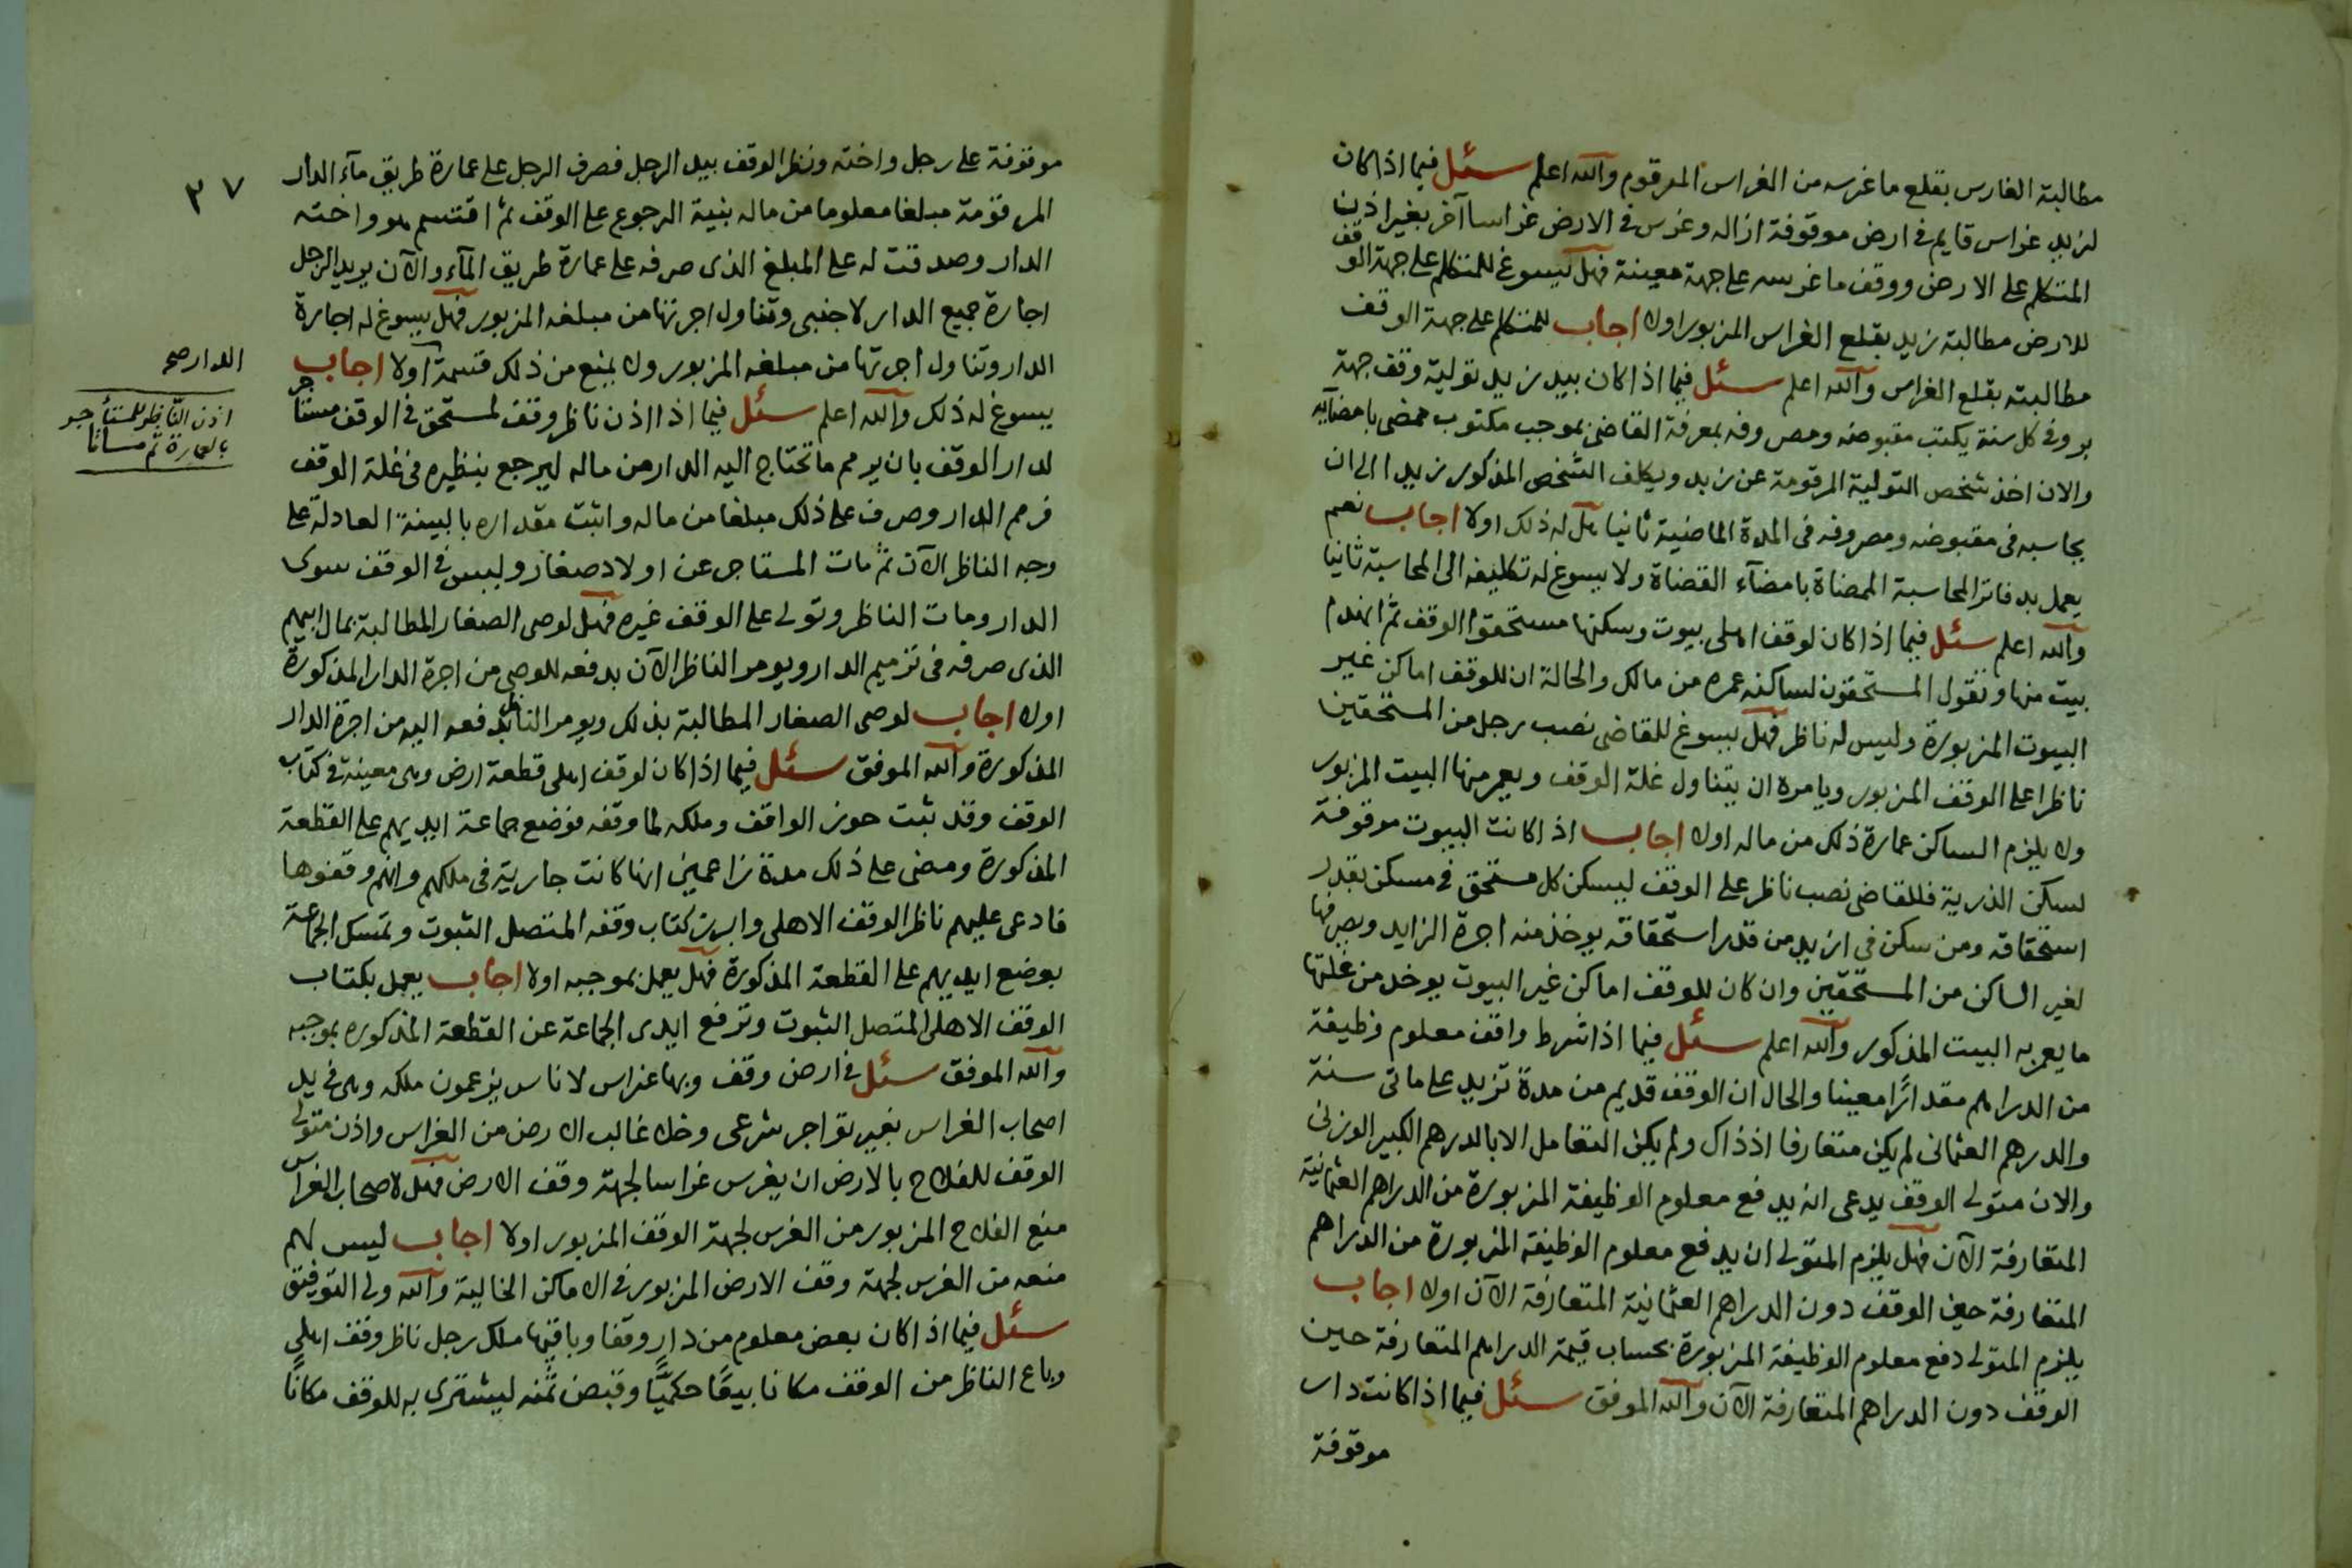 مطالبة الغارس بقلع ما غرسه من الغراس المرقوم والله اعلم سئل فيما اذا كان
لزيد غراس قايم في ارض موقوفة ازاله وغرس في الارض غراسا آخر بغير اذن
المتكلم على الارض ووقف ما غرسه على جهة معينة فهل يسوغ للمتكلم على جهة الوقف
للارض مطالبة زيد بقلع الغراس المزبور اولا اجاب للمتكلم على جهة الوقف
مطالبته بقلع الغراس والله اعلم سئل فيما اذا كان بيد زيد تولية وقف جهة
بر وفي كل سنة يكتب مقبوضه ومصروفه بمعرفة القاضى بموجب مكتوب ممضى بامضآيه
والان اخذ شخص التولية المرقومة عن زيد ويكلف الشخص المذكور زيدا الى ان
يحاسبه فى مقبوضه ومصروفه فى المدة الماضية ثانيا هل له ذلك اولا اجاب نعم
يعمل بدفاتر المحاسبة الممضاة بامضآء القضاة ولا يسوغ له تكليفه الى المحاسبة ثانيا
والله اعلم سئل فيما اذا كان لوقف اهلى بيوت وسكنها مستحقوا الوقف ثم انهدم
بيت منها وتقول المستحقون لساكنه عمره من مالك والحالة ان للوقف اماكن غير
البيوت المزبورة وليس له ناظر فهل يسوغ للقاضى نصب رجل من المستحقين
ناظرا على الوقف المزبور ويامره ان يتناول غلة الوقف ويعمر منها البيت المزبور
ولا يلزم الساكن عمارة ذلك من ماله اولا اجاب اذا كانت البيوت موقوفة
لسكن الذرية فللقاضى نصب ناظر على الوقف ليسكن كل مستحق في مسكن بقدر
استحقاقه ومن سكن فى ازيد من قدر استحقاقه يوخذ منه اجرة الزايد ويصرفها
لغير الساكن من المستحقين وان كان للوقف اماكن غير البيوت يوخذ من غلتها
ما يعمر به البيت المذكور والله اعلم سئل فيما اذا شرط واقف معلوم وظيفة
من الدراهم مقدارًا معينا والحال ان الوقف قديم من مدة تزيد على ماتى سنة
والدرهم العثمانى لم يكن متعارفا اذ ذاك ولم يكن التعامل الا بالدرهم الكبير الوزنى
والان متولى الوقف يدعى انه يدفع معلوم الوظيفة المزبورة من الدراهم العثمانية
المتعارفة الآن فهل يلزم المتولى ان يدفع معلوم الوظيفة المزبورة من الدراهم
المتعارفة حين الوقف دون الدراهم العثمانية المتعارفة الآن اولا اجاب
يلزم المتولى دفع معلوم الوظيفة المزبورة بحساب قيمة الدراهم المتعارفة حين
الوقف دون الدراهم المتعارفة الآن والله الموفق سئل فيما اذا كانت دار
موقوفة
٣٧
موقوفة على رجل واخته ونظر الوقف بيد الرجل فصرف الرجل على عمارة طريق مآء الدار
المرقومة مبلغا معلوما من ماله بنية الرجوع على الوقف ثم اقتسم هو واخته
الدار وصدقت له على المبلغ الذى صرفه على عمارة طريق المآء والآن يريد الرجل
اجارة جميع الدار لاجنبى وتناول اجرتها من مبلغه المزبور فهل يسوغ له اجارة
الدار وتناول اجرتها من مبلغه المزبور ولا يمنع من ذلك قسمة اولا اجاب
يسوغ له ذلك والله اعلم سئل فيما اذا اذن ناظر وقف لمستحق في الوقف مستاجر
لدار الوقف بان يرمم ما تحتاج اليه الدار من ماله ليرجع بنظيره فى غلة الوقف
فرمم الدار وصرف على ذلك مبلغا من ماله واثبت مقداره بالبينة العادلة على
وجه الناظر الآن ثم مات المستاجر عن اولاد صغار وليس في الوقف سوى
الدار ومات الناظر وتولى على الوقف غيره فهل لوصى الصغار المطالبة بمال ابيهم
الذى صرفه فى ترميم الدار ويومر الناظر الآن بدفعه للوصى من اجرة الدار المذكورة
اولا اجاب لوصى الصغار المطالبة بذلك ويومر الناظر بدفعه اليه من اجرة الدار
المذكورة والله الموفق سئل فيما اذا كان لوقف اهلى قطعة ارض وهى معينة في كتاب
الوقف وقد ثبت حوز الواقف وملكه لما وقفه فوضع جماعة ايديهم على القطعة
المذكورة ومضى على ذلك مدة زاعمين انها كانت جارية فى ملكهم وانهم وقفوها
فادعى عليهم ناظر الوقف الاهلى وابرز كتاب وقفه المتصل الثبوت وتمسك الجماعة
بوضع ايديهم على القطعة المذكورة فهل يعمل بموجبه اولا اجاب يعمل بكتاب
الوقف الاهلى المتصل الثبوت وترفع ايدى الجماعة عن القطعة المذكوره بموجبه
والله الموفق سئل في ارض وقف وبها غراس لاناس يزعمون ملكه وهى في يد
اصحاب الغراس بغير تواجر شرعى وخلا غالب الارض من الغراس واذن متولى
الوقف للفلاح بالارض ان يغرس غراسا لجهة وقف الارض فهل لاصحاب الغراس
منع الفلاح المزبور من الغرس لجهة الوقف المزبور اولا اجاب ليس لهم
منعه من الغرس لجهة وقف الارض المزبور فى الاماكن الخالية والله ولى التوفيق
سئل فيما اذا كان بعض معلوم من دارٍ وقفا وباقيها ملك رجل ناظر وقف اهلى
وباع الناظر من الوقف مكانا بيعًا حكميًّا وقبض ثمنه ليشترى به للوقف مكانًا
الدار صح
اذن الناظر للمستأجر
بالعمارة ثم مات